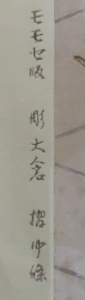 モモセ版 彫大倉 摺伊藤